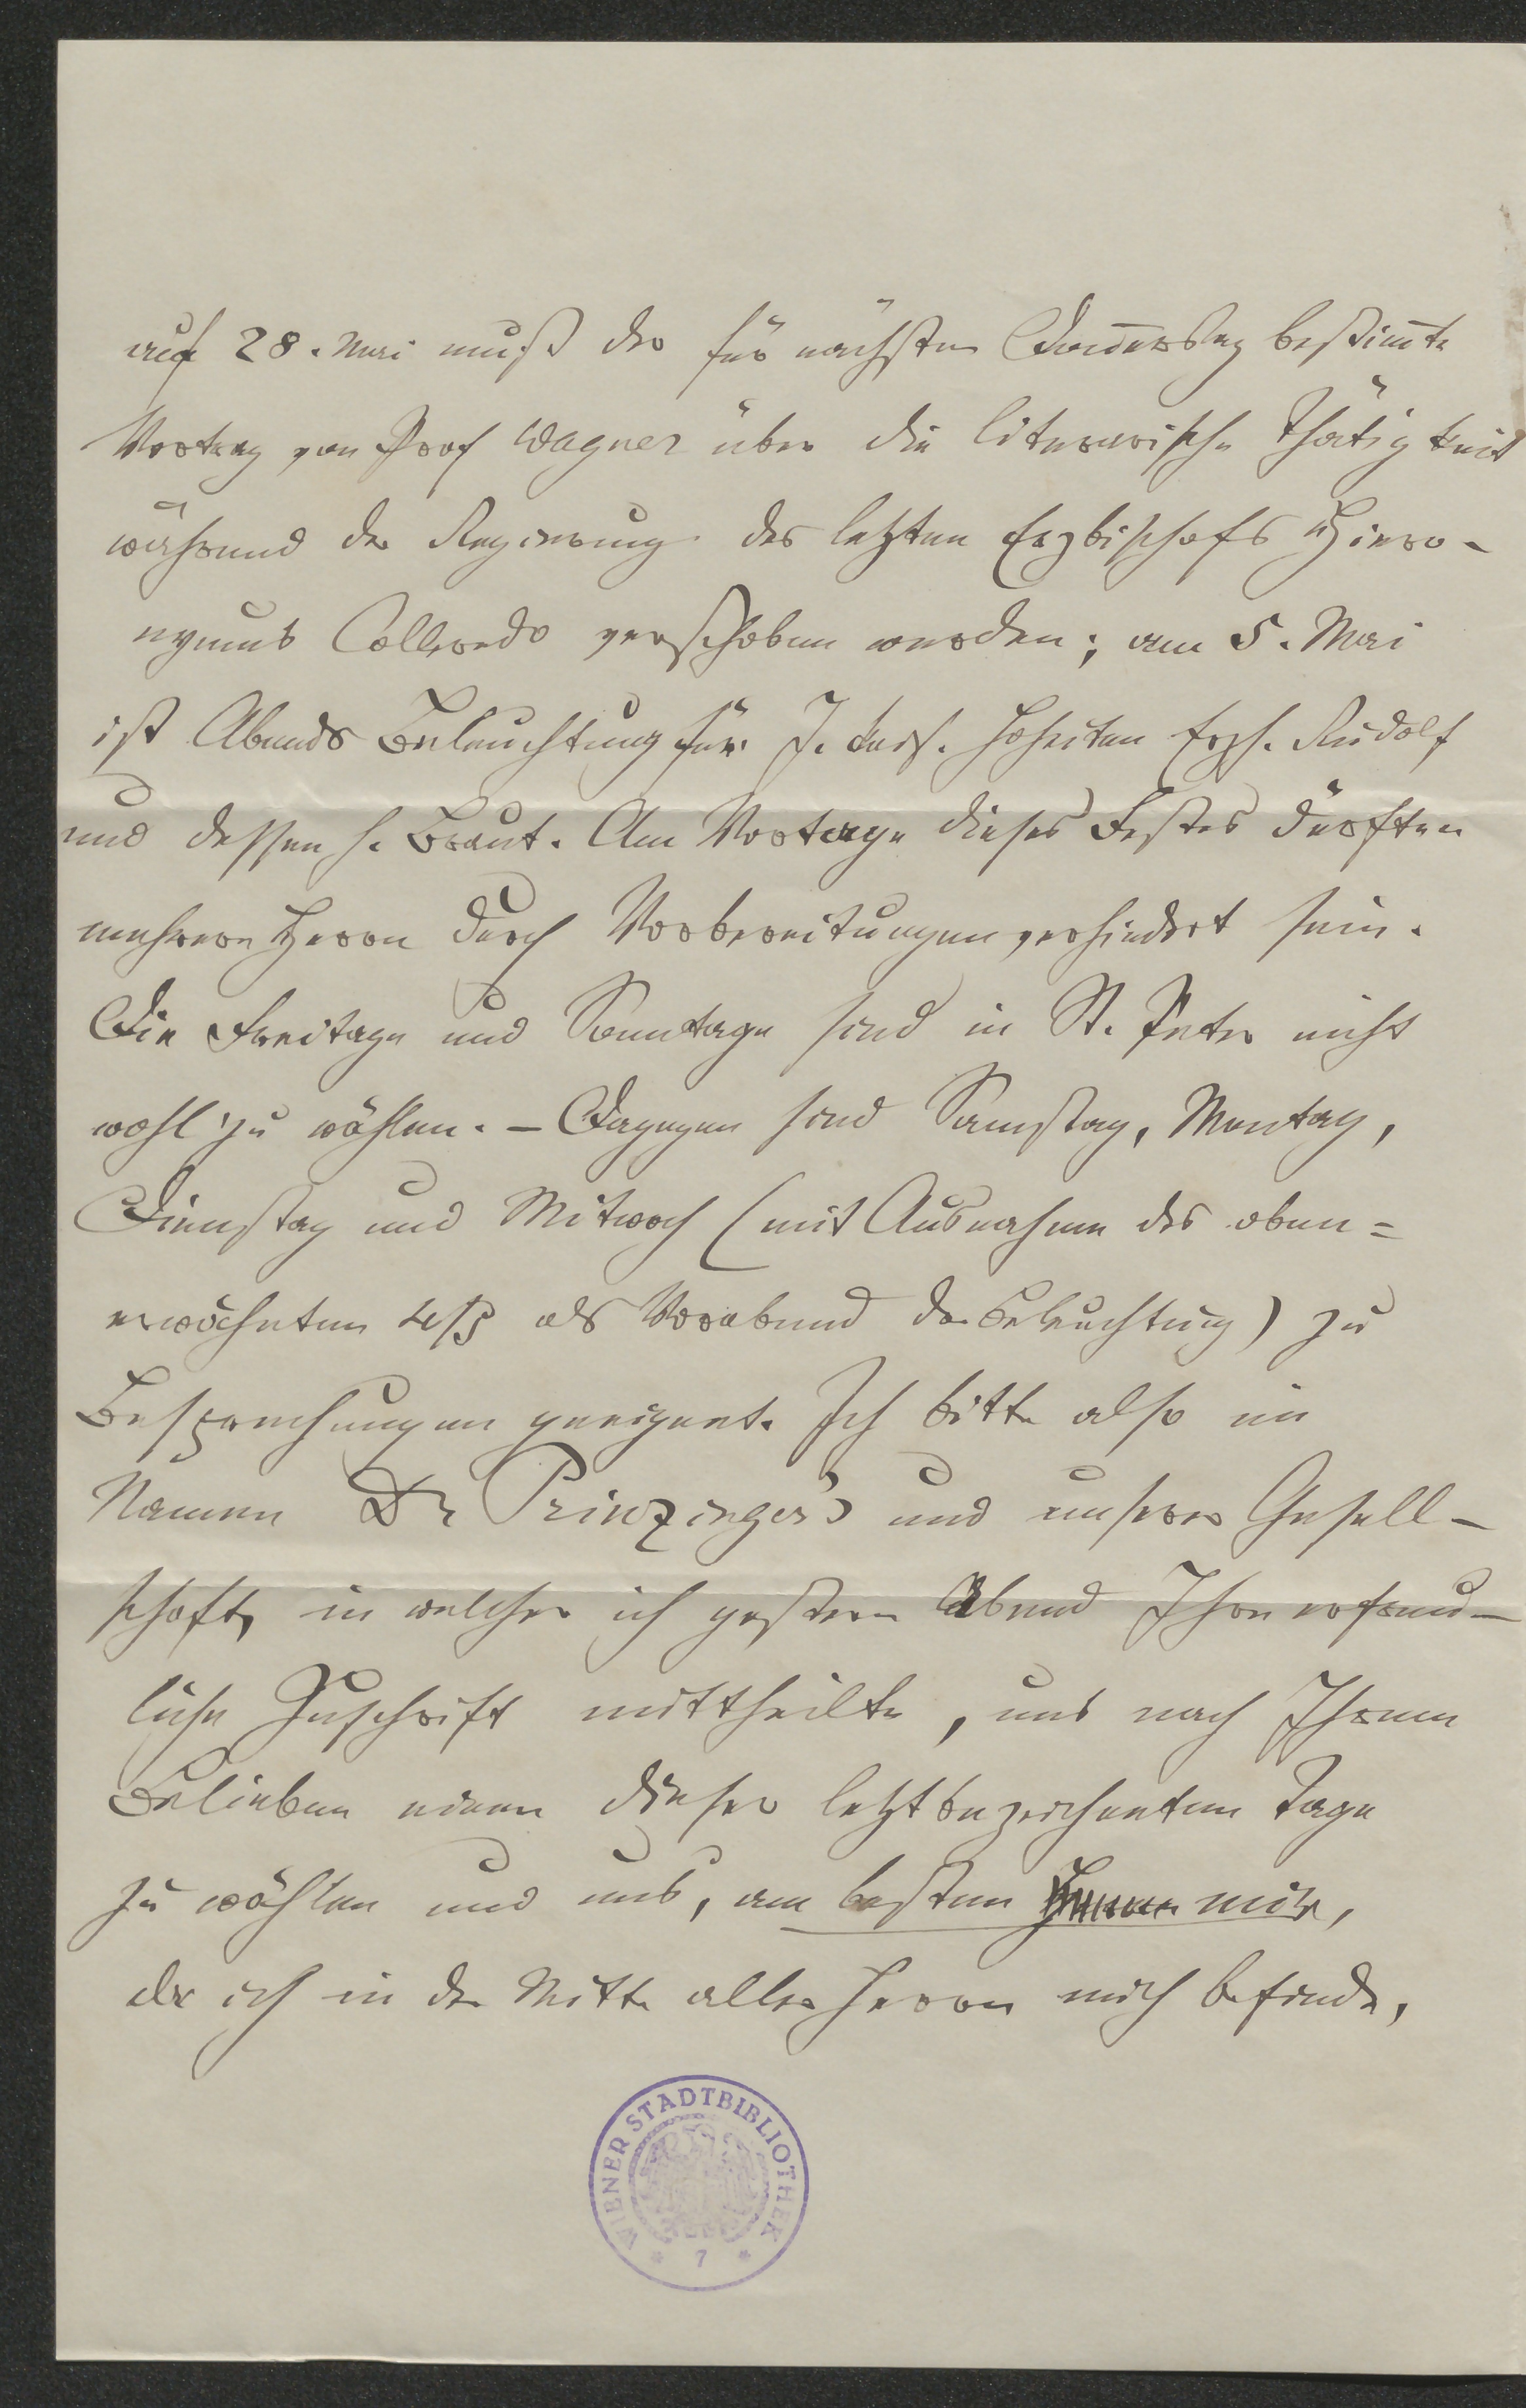 auf 28. Mai muß der für nächsten Doñerstag bestim̄te
Vortrag von Prof Wagner über die literarische Thätigkeit
während der Regierung des letzten Erzbischofs Hiero-
nymus Colloredo verschoben werden; am 5. Mai
ist Abends Beleuchtung für J. kais. Hoheiten Erzh. Rudolf
und dessen h. Braut. Am Vortage dieses Festes dürften
mehrere Herrn durch Vorbereitungen verhindert sein.
Die Freitage und Sonntage sind in St. Peter nicht
wohl zu wählen. – Dagegen sind Samstag, Montag,
Dienstag und Mitwoch (mit Ausnahme des oben=
erwähnten 4/5 als Vorabend der Beleuchtung) zu
Besprechungen geeignet. Ich bitte also im
Namen Dr Prinzinger's und unserer Gesell-
schaft, in welcher ich gestern Abend Ihre erfreu-
liche Zuschrift mittheilte, uns nach Ihrem
Belieben einen dieser letztbezeichneten Tage
zu wählen und uns, am besten mir,
da ich in der Mitte aller Herrn mich befinde,
WIENER STADTBIBLIOTHEK
* 7 *